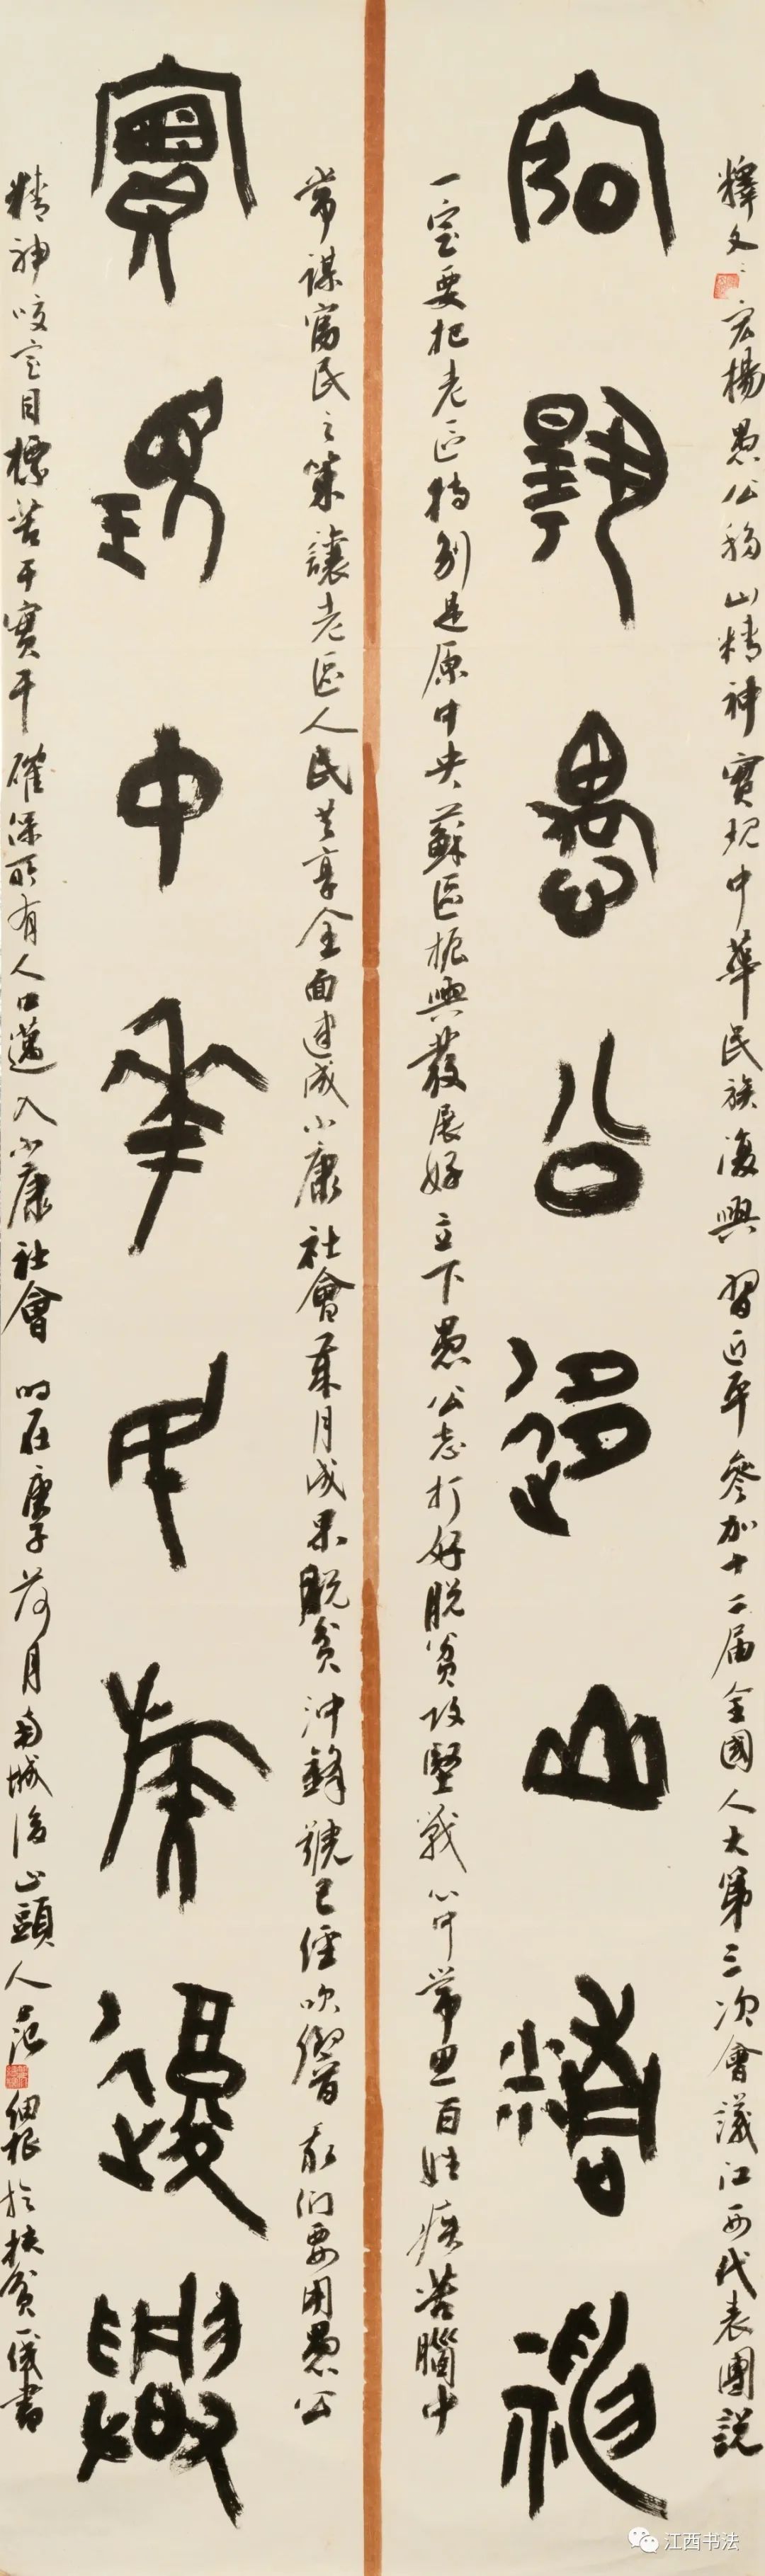 釋文：宏楊愚公移山精神實現中華民族復興 習近平參加十二届全國人大第三次會議江西代表團説
宏揚愚公迻山精神
一定要把老區特别是原中央蘇區振興發展好立下愚公志打好脱貧攻堅戰心中常思百姓疾苦腦中
常謀富民之策讓老區人民共享全面建成小康社會成果脱貧沖鋒號已經吹響我們要用愚公
實現中華民族復興
精神咬定目標苦干實干確保所有人口邁入小康社會 時在庚子荷月南城後山頭人范細根於扶貧一綫書
江西书法